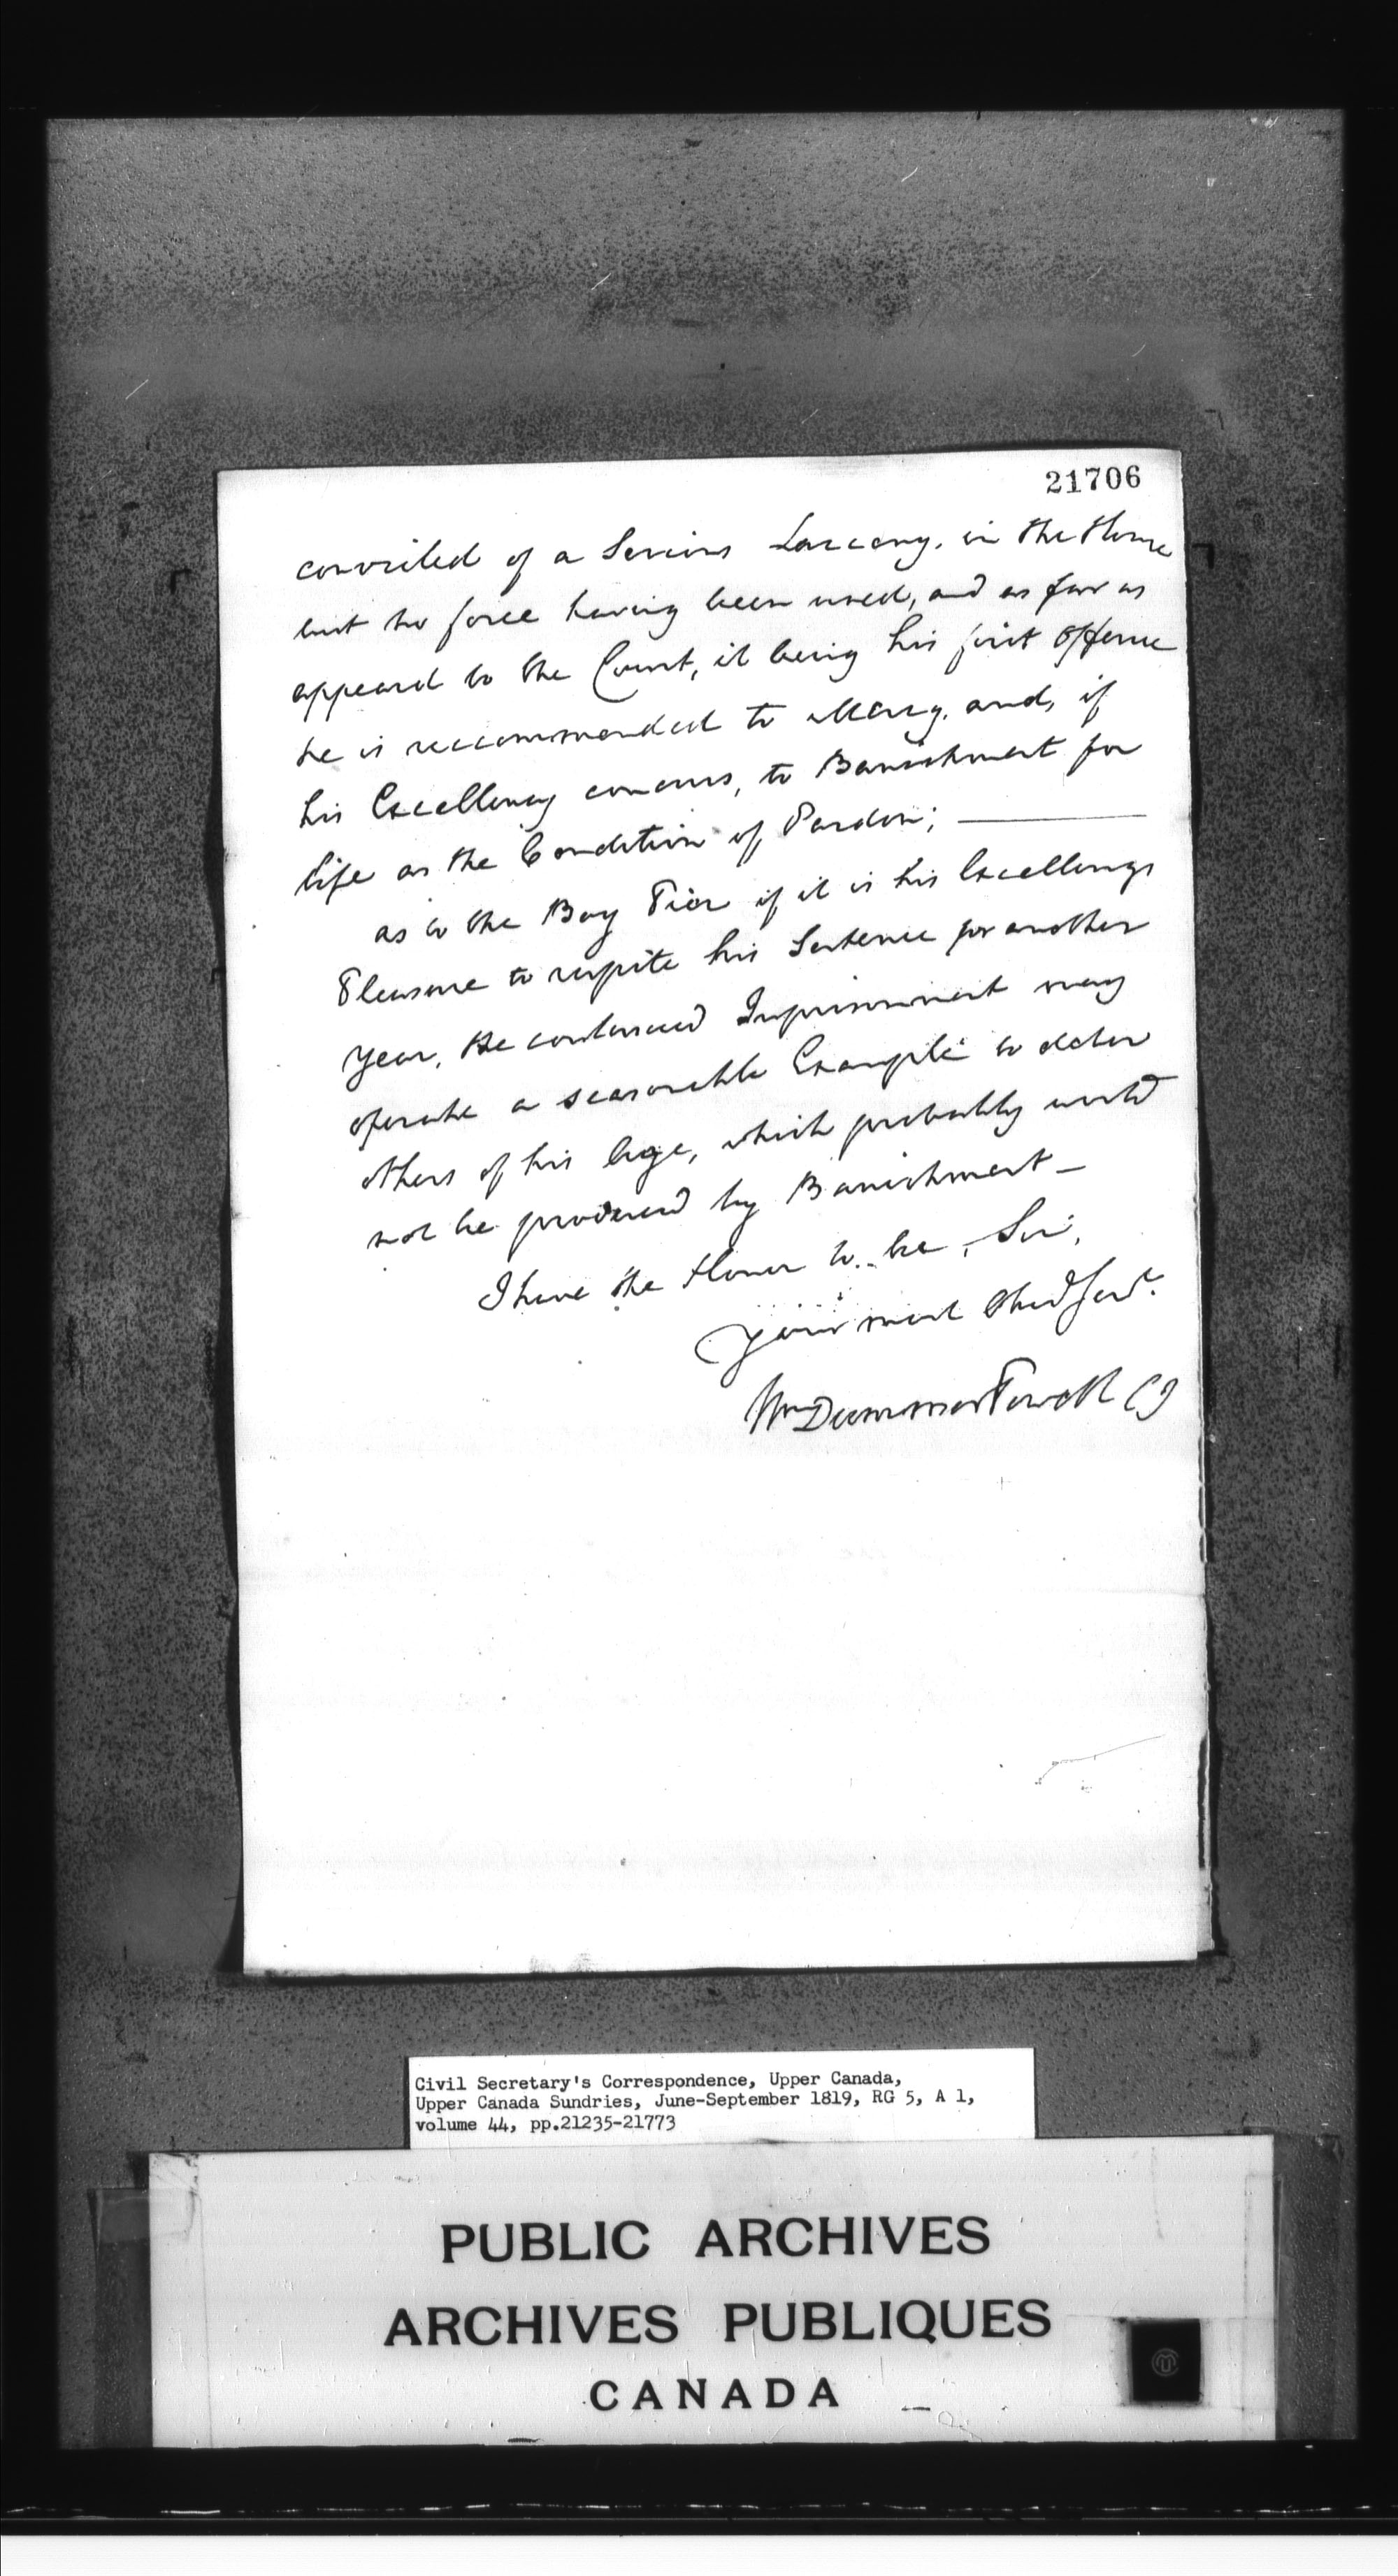 21706
convicted of a Serious Larceny, in the House
but no force having been used, and as far as
appeard to the Court, it being his first Offence
he is recommended to Mercy, and, if
his Excellency concurs, to Banishment for
Life as the Condition of Pardon; —
as to the Boy if it is his Excellencys
Pleasure to respite his Sentence for another
Year, the continued Imprisonment may
operate a seasonable Example to deter
others of his Age, which probably would
not be produced by Banishment —
I have the Honor to be, Sir,
Your most Obed Servt.
Wm Dummer Powell CJ
Civil Secretary's Correspondence, Upper Canada,
Upper Canada Sundries, June-September 1819, RG 5, A 1,
volume 44, pp.21235-21773
PUBLIC ARCHIVES
ARCHIVES PUBLIQUES
CANADA